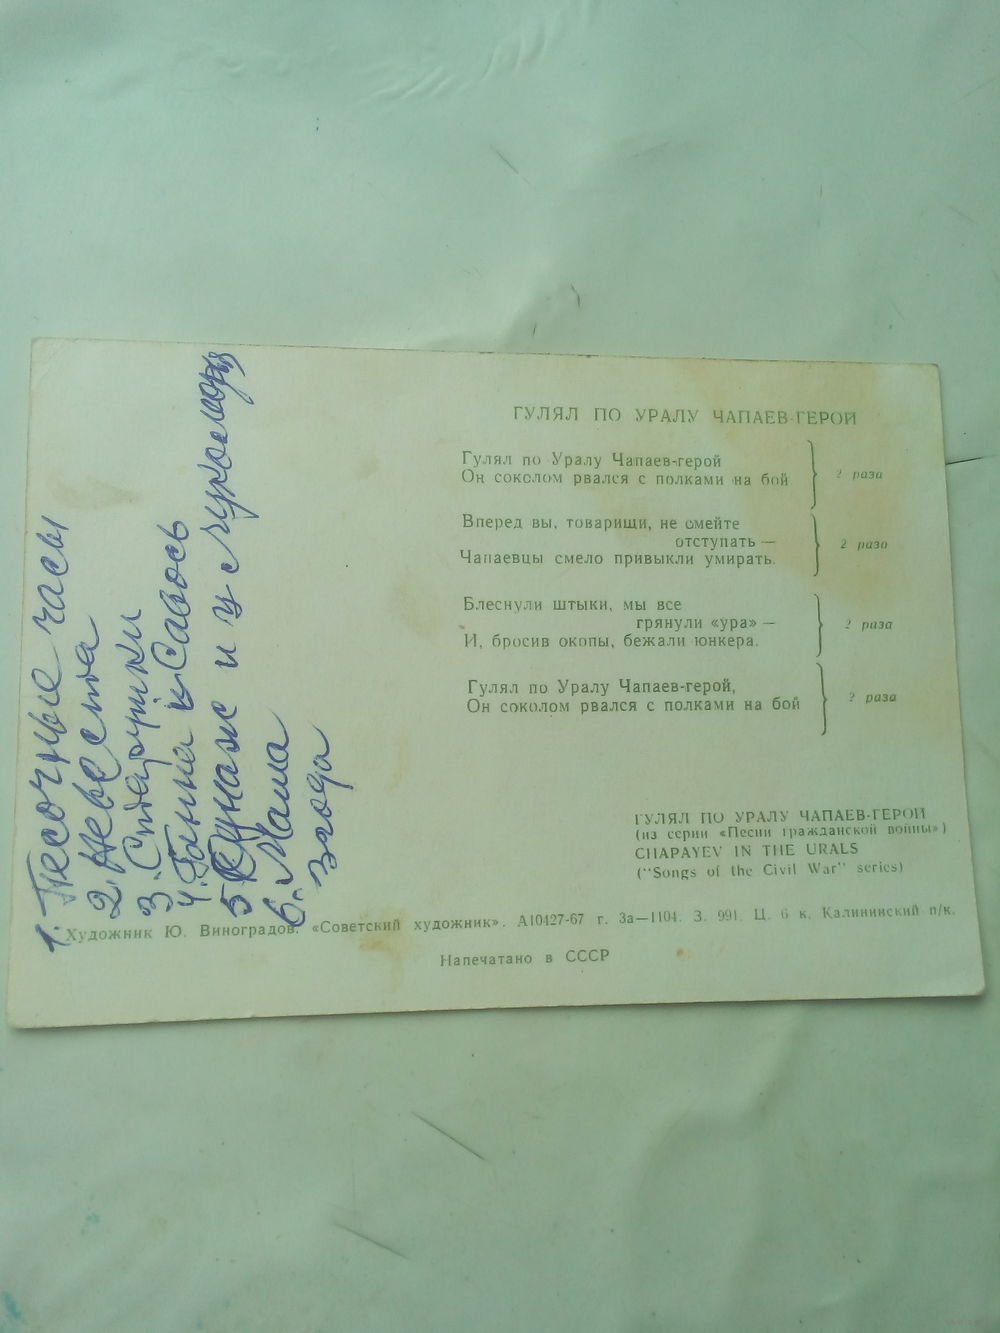 1. Песочные часы
2. Невеста
3. Старушки
4. Ганна к Савось
5
6. Маша
3 года
ГУЛЯЛ ПО УРАЛУ ЧАПАЕВ-ГЕРОЙ
Гулял по Уралу Чапаев-герой
Он соколом рвался с полками на бой
2 раза
Вперед вы, товарищи, не смейте
отступать —
Чапаевцы смело привыкли умирать.
2 раза
Блеснули штыки, мы все
грянули «ура» —
И, бросив окопы, бежали юнкера.
2 раза
Гулял по Уралу Чапаев-герой,
Он соколом рвался с полками на бой
2 раза
ГУЛЯЛ ПО УРАЛУ ЧАПАЕВ-ГЕРОЙ
(из серии «Песни гражданской войны»)
CHAPAYEV IN THE URALS
("Songs of the Civil War" series)
Художник Ю. Виноградов. «Советский художник». А10427-67 г. За—1104. З. 991. Ц. 6 к. Калининский п/к.
Напечатано в СССР